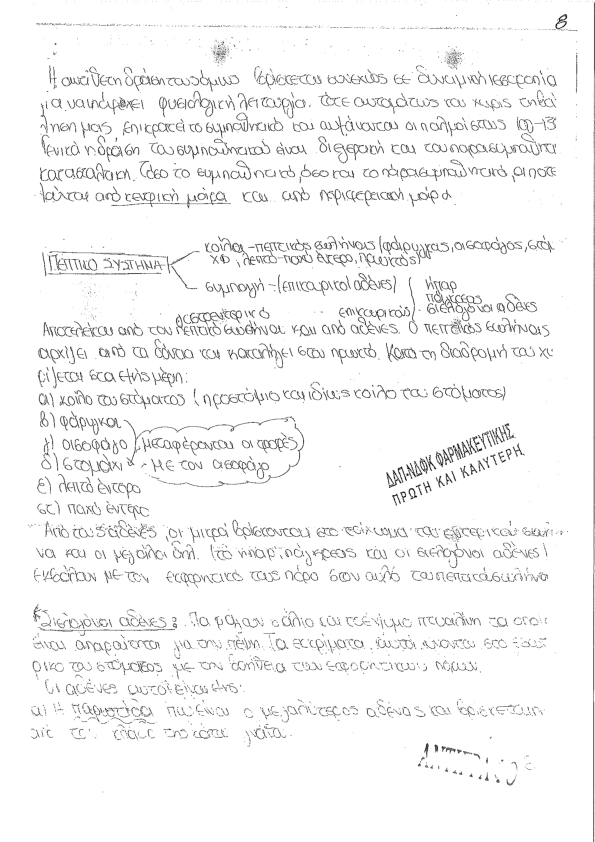 8
Η αντίθετη δράση τους όμως βρίσκεται συνεχώς σε δυναμική ισορροπία
για να υπάρχει φυσιολογική λειτουργία. τότε αυτομάτως και χωρίς τη θέ
λησή μας, επικρατεί το συμπαθητικό και αυξάνονται οι παλμοί στους 100-13
Γενικά η δράση του συμπαθητικού είναι διεγερτική και του παρασυμπαθητι
κατασταλτική. Τόσο το συμπαθητικό, όσο και το παρασυμπαθητικό, αποτε
λούνται από κεντρική μοίρα και από περιφερειακή μοίρα.
ΠΕΠΤΙΚΟ ΣΥΣΤΗΜΑ
κοίλα - πεπτικός σωλήνας (φάρυγγας, οισοφάγος, στομ
χι, λεπτό-παχύ έντερο, πρωκτός)
συμπαγή - (επικουρικοί αδένες)
ήπαρ
πάγκρεας
σιελογόνοι αδένες
γαστρεντερικό επικουρικούς
Αποτελείται από τον πεπτικό σωλήνα και από αδένες. Ο πεπτικός σωλήνας
αρχίζει από τα δόντια και καταλήγει στον πρωκτό. Κατά τη διαδρομή του χω
ρίζεται στα εξής μέρη:
α) κοίλο του στόματος (προστόμιο και ιδίως κοίλο του στόματος)
β) φάρυγγα
γ) οισοφάγο μεταφέρονται οι τροφές
δ) στομάχι - με τον οισοφάγο
ε) λεπτό έντερο
στ) παχύ έντερο
ΔΑΠ-ΝΔΦΚ ΦΑΡΜΑΚΕΥΤΙΚΗΣ
ΠΡΩΤΗ ΚΑΙ ΚΑΛΥΤΕΡΗ
Από τους αδένες, οι μικροί βρίσκονται στο τοίχωμα του
να και οι μεγάλοι δηλ. (το ήπαρ, πάγκρεας και οι σιελογόνοι αδένες)
εκβάλλουν με τον εκφορητικό τους πόρο στον αυλό του πεπτικού σωλήνα
Σιελογόνοι αδένες: Παράγουν σάλιο και το ένζυμο πτυαλίνη τα οποί
είναι απαραίτητα για την πέψη. Τα εκκρίματα αυτά χύνονται στο
ρικο του στόματος με την βοήθεια των εκφορητικών πόρων.
Οι αδένες αυτοί είναι εξής:
α) Η παρωτίδα που είναι ο μεγαλύτερος αδένας και βρίσκεται
της κάτω γνάθου.